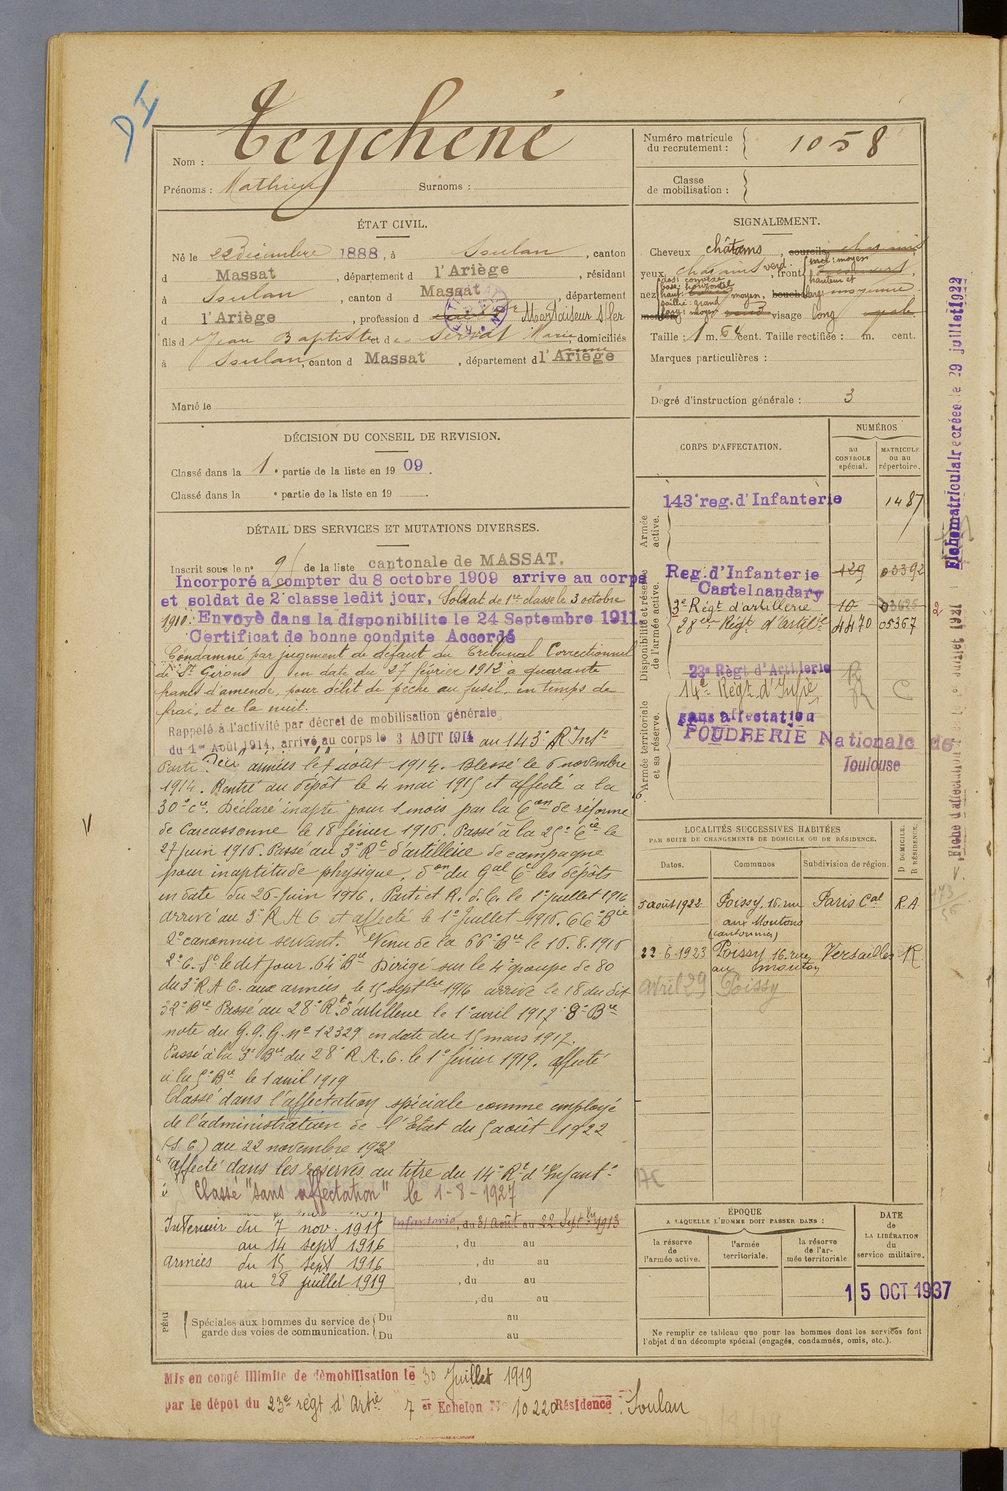 DI
Nom : Teychené
Prénoms : Mathieu Surnoms :
Numéro matricule du recrutement : 1058
Classe de mobilisation :
ÉTAT CIVIL.
Né le 22 Décembre 1888, à Soulan, canton
d Massat, département d l'Ariège, résidant
à Soulan, canton d Massat, département
d l'Ariège, profession d
fils d Jean Baptiste et de Servat Marie domiciliés
à Soulan, canton d Massat, département d l'Ariège
Marié le
SIGNALEMENT.
Cheveux châtains, sourcils
yeux verd. front incl: moyen
hauteur et
nez dos: base: horizontal
haut: moyen, bouche larg: moyenne
saillie: grand
visage long
Taille : 1 m. 64 cent. Taille rectifiée : m. cent.
Marques particulières :
Degré d'instruction générale : 3
DÉCISION DU CONSEIL DE REVISION.
Classé dans la 1e partie de la liste en 1909.
Classé dans la e partie de la liste en 19 .
DÉTAIL DES SERVICES ET MUTATIONS DIVERSES.
Inscrit sous le n° 9 de la liste cantonale de MASSAT.
Incorporé a compter du 8 octobre 1909 arrive au corps
et soldat de 2e classe ledit jour, Soldat de 1re classe le 3 octobre
1910. Envoyé dans la disponibilite le 24 Septembre 1911
Certificat de bonne conduite Accordé
Condamné par jugement de défaut du Tribunal Correctionnel
de St Girons, en date du 27 février 1912 à quarante
francs d'amende, pour délit de pêche au fusil, en temps de
frai, et ce la nuit.
Rappelé à l'activité par décret de mobilisation générale
du 1er Août 1914, arrivé au corps le 3 AOUT 1914 au 143e R Infie
Parti aux armées le 7 août 1914. Blessé le 6 novembre
1914. Rentré au dépôt le 4 mai 1915 et affecté à la
30e Cie. Déclaré inapte pour 1 mois par la Con de réforme
de Carcassonne le 18 février 1916. Passé à la 25e Cie le
27 juin 1916. Passé au 3e Rt d'artillerie de campagne
pour inaptitude physique, don du Gal Ct les dépôts
en date du 26 Juin 1916. Parti et R. d. C. le 1er juillet 1916
arrivé au 3e R A C et affecté le 1er Juillet 1916. 66e Bie
2e canonnier servant. Venu de la 66e Bie le 10.8.1916
2e C. St le dit jour. 64e Bie Dirigé sur le 4e groupe de 80
du 3e R A C. aux armées, le 15 septbre 1916 arrivé le 18 du dit
32e Bie Passé au 28e Rt d'artillerie le 1er avril 1917 8e Bie
note du G.Q.G. N° 12329 en date du 15 mars 1917.
Passé à la 3e Bie du 28e R.A.C. le 1er février 1919. affecté
à la 5e Bie le 1 avril 1919
Classé dans l'affectation spéciale comme employé
de l'administration de l'Etat du 5 août 1922
au 22 novembre 1922
affecté dans les réserves au titre du 14e Rt d'Infantie
Classé "sans affectation" le 1-8-1927
Intérieur du 7 nov. 1915
au 14 sept 1916
armées du 15 sept 1916
au 28 juillet 1919
Infanterie, du 31 Août au 22 Septbre 1913
, du au
, du au
, du au
, du au
PÉRI
Spéciales aux hommes du service de garde des voies de communication. Du au
Du au
CORPS D'AFFECTATION.
NUMÉROS
au CONTROLE spécial.
MATRICULE ou au répertoire.
Armée active.
143e reg. d'Infanterie 1487
Disponibilité et réserve de l'armée active.
Reg. d'Infanterie Castelnaudary 129 03392
3e Régt d'artillerie 10 03626
28e Régt d'artilie 4470 05367
23e Régt d'Artillerie
14e Régt d'Infie C
Armée territoriale et sa réserve.
sans affectation
POUDRERIE Nationale de Toulouse
LOCALITÉS SUCCESSIVES HABITÉES
PAR SUITE DE CHANGEMENTS DE DOMICILE OU DE RÉSIDENCE.
Dates. Communes Subdivision de région. D DOMICILE. R RÉSIDENCE.
5 août 1922 Poissy, 16, rue aux Moutons (cantonnier) Paris Cal R A
22-6-1923 Poissy 16 rue au mouton Versailles R
avril 29 Poissy
AC
ÉPOQUE
A LAQUELLE L'HOMME DOIT PASSER DANS :
la réserve de l'armée active.
l'armée territoriale.
la réserve de l'armée territoriale
DATE de LA LIBÉRATION du service militaire.
15 OCT 1937
Ne remplir ce tableau que pour les hommes dont les services font l'objet d'un décompte spécial (engagés, condamnés, omis, etc.).
Mis en congé illimité de démobilisation le 30 Juillet 1919
par le dépot du 23e régt d'Artie 7 er Echelon N° 10220 Résidence : Soulan
Fiche matriculaire créée le 29 juillet 1922